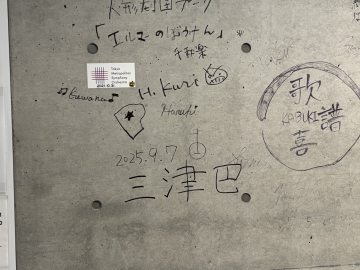 人形劇団
「エルマーのぼうけん」
千秋楽
Tokyo
Metropolitan
Symphony
Orchestra
H. Kuri
Kuwana
Haruki
歌
KABUKI
譜
喜
2025.9.7
三津巴